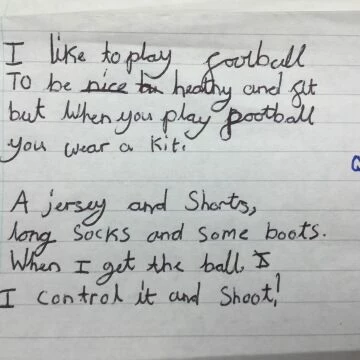 I like to play football
TO be nice to heathy and fit
but when you play football
you wear a kit.
A jersey and Shorts,
long socks and some boots.
When I get the ball I
I control it and Shoot!
Q